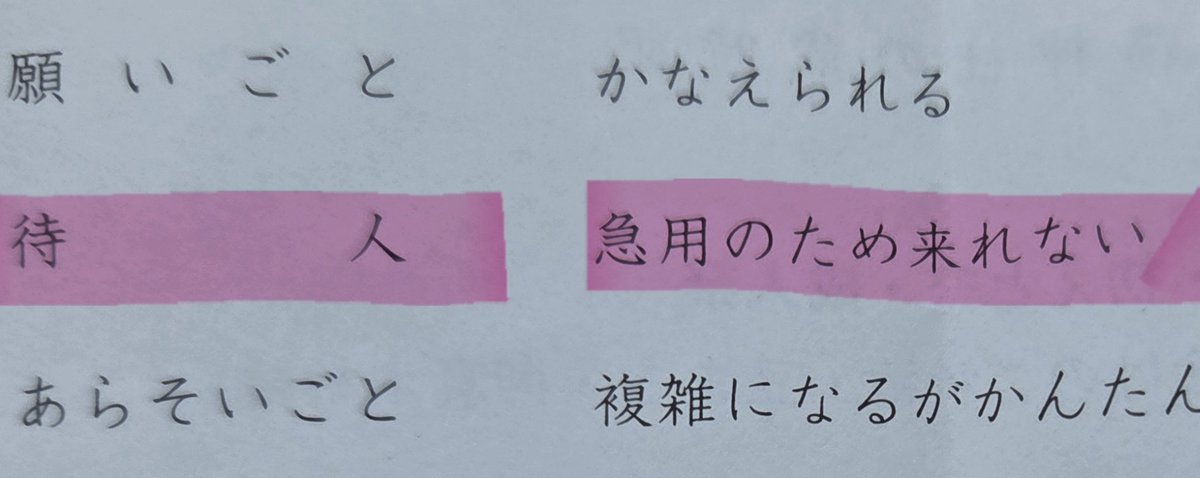 願いごと かなえられる
待人 急用のため来れない
あらそいごと 複雑になるがかんたん